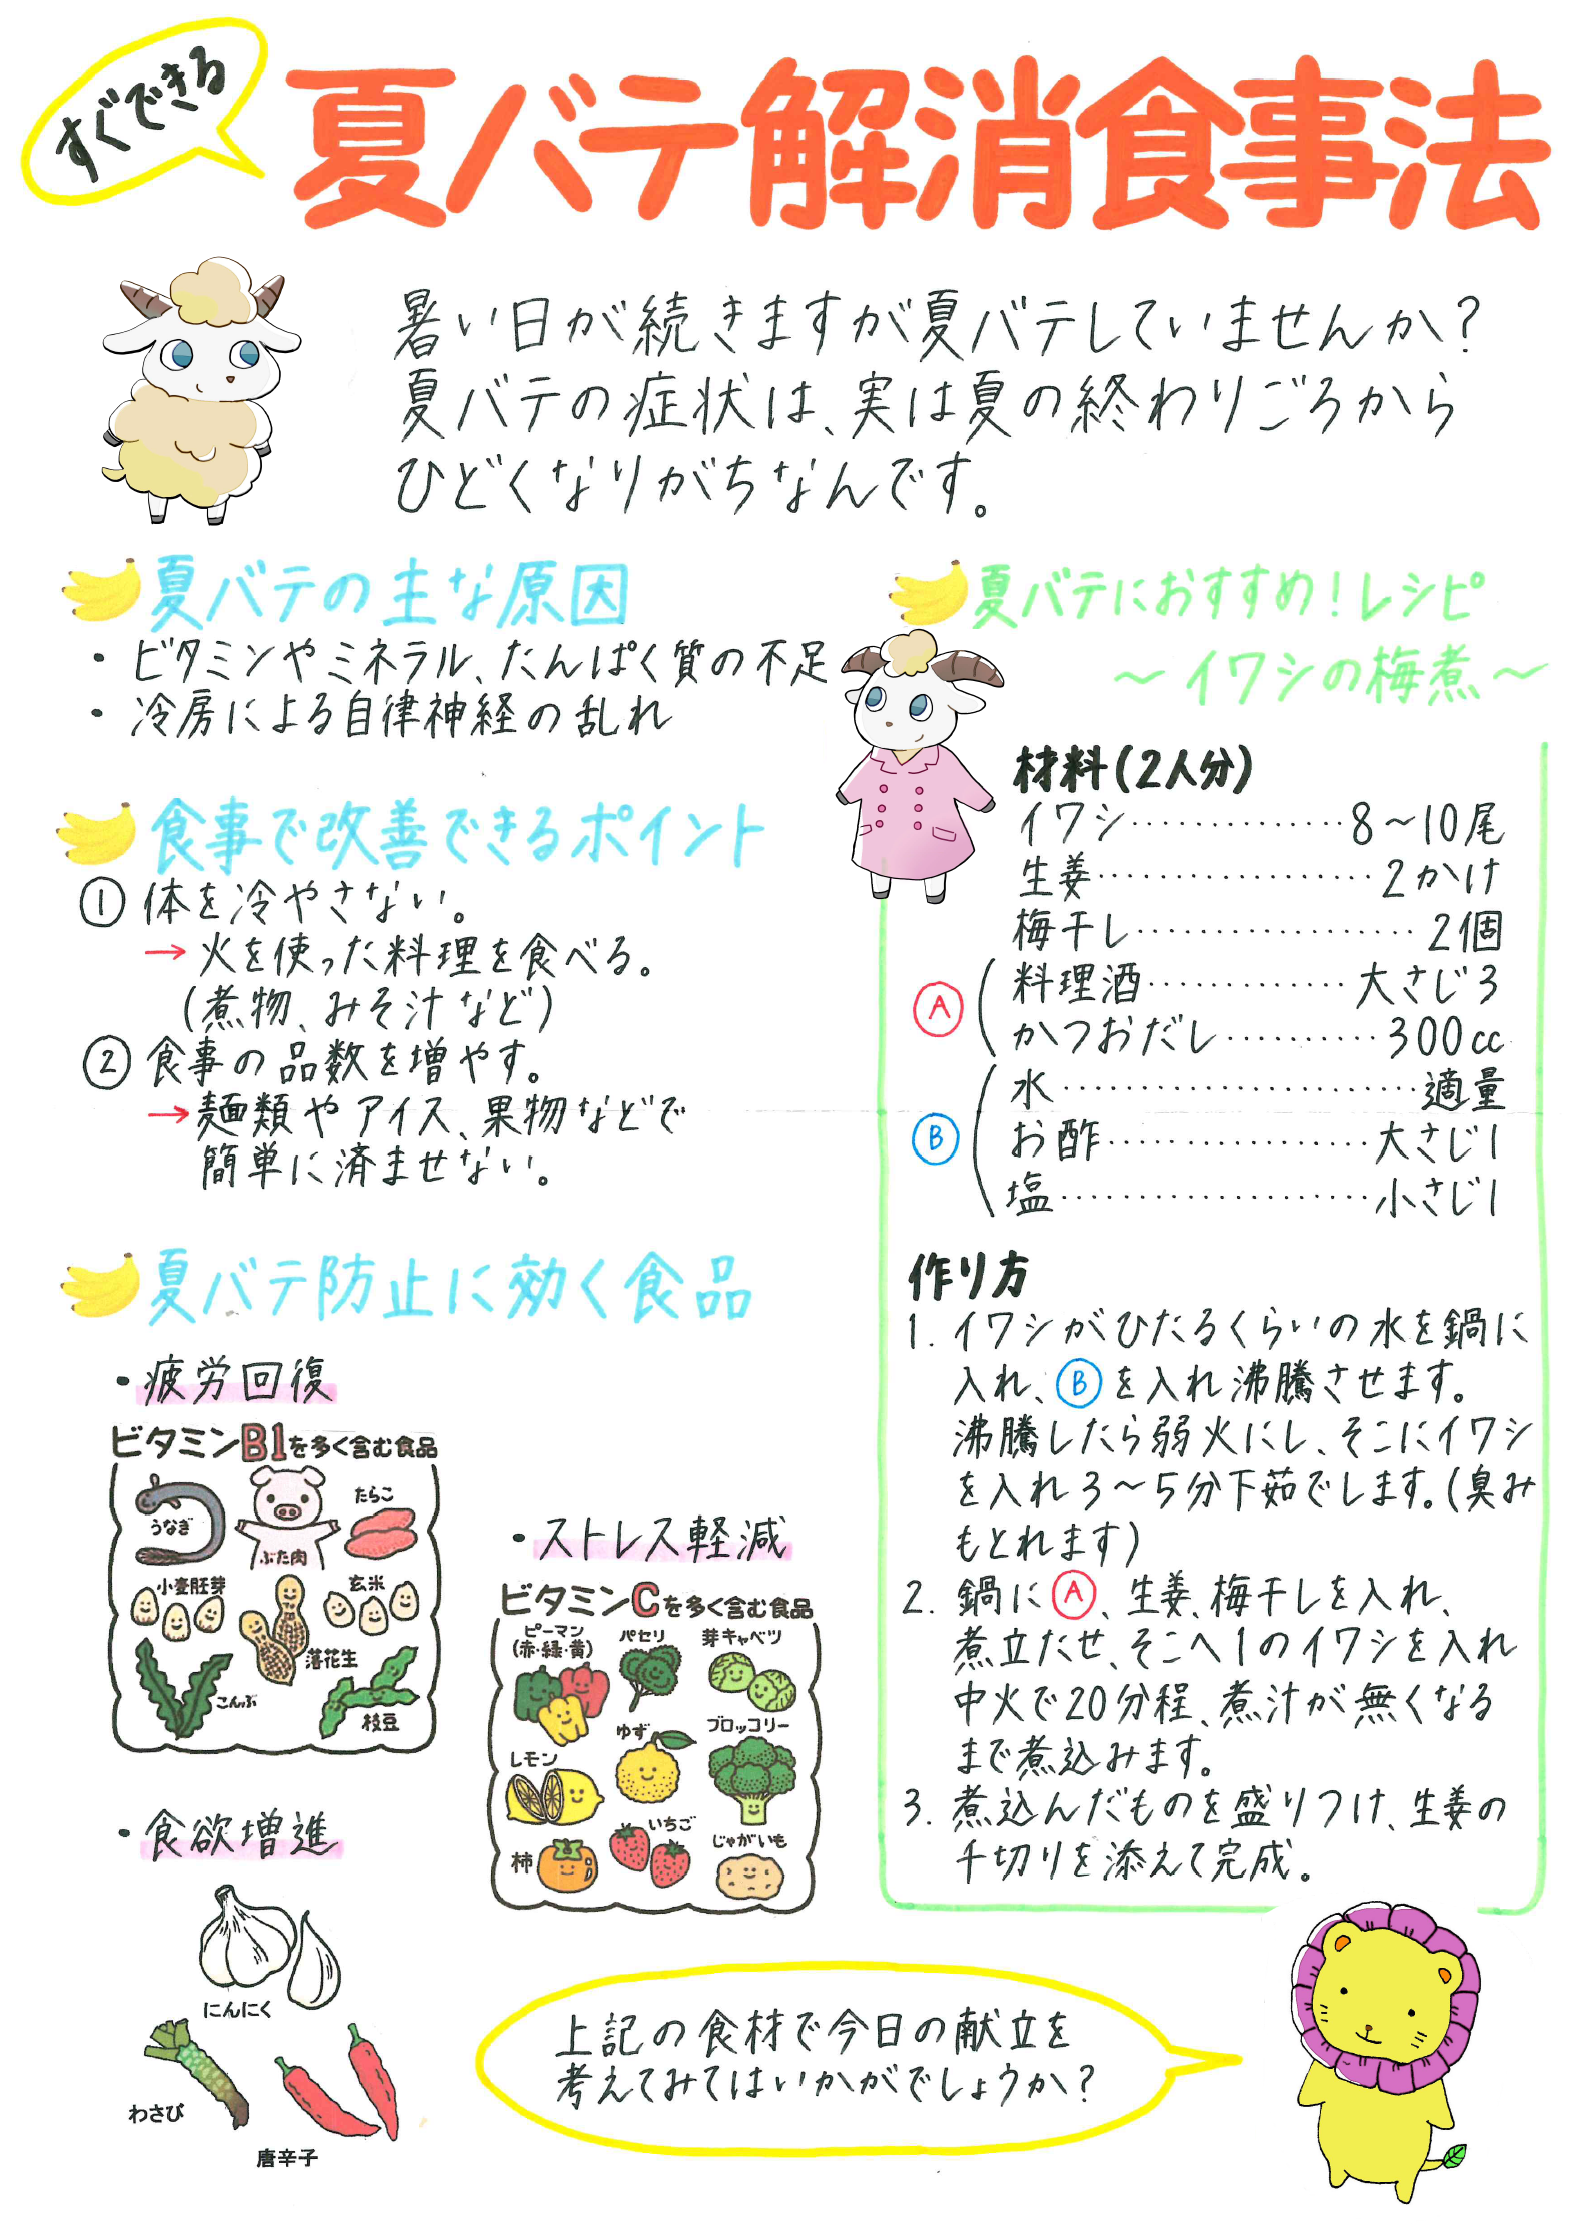 すぐできる
夏バテ解消食事法
暑い日が続きますが夏バテしていませんか?
夏バテの症状は、実は夏の終わりごろから
ひどくなりがちなんです。
夏バテの主な原因
・ビタミンやミネラル、たんぱく質の不足
・冷房による自律神経の乱れ
食事で改善できるポイント
① 体を冷やさない。
→火を使った料理を食べる。
(煮物、みそ汁など)
② 食事の品数を増やす。
→麺類やアイス、果物などで
簡単に済ませない。
夏バテ防止に効く食品
・疲労回復
ビタミンB1を多く含む食品
うなぎ
ぶた肉
たらこ
小麦胚芽
玄米
落花生
こんぶ
枝豆
・ストレス軽減
ビタミンCを多く含む食品
ピーマン
(赤・緑・黄)
パセリ
芽キャベツ
ゆず
ブロッコリー
レモン
いちご
じゃがいも
柿
・食欲増進
にんにく
わさび
唐辛子
夏バテにおすすめ!レシピ
～イワシの梅煮～
材料(2人分)
イワシ……………8～10尾
生姜…………………2かけ
梅干し…………………2個
Ⓐ
料理酒……………大さじ3
かつおだし…………300cc
Ⓑ
水………………………適量
お酢…………………大さじ1
塩……………………小さじ1
作り方
1. イワシがひたるくらいの水を鍋に
入れ、Ⓑを入れ沸騰させます。
沸騰したら弱火にし、そこにイワシ
を入れ3～5分下茹でします。(臭み
もとれます)
2. 鍋にⒶ、生姜、梅干しを入れ、
煮立たせ、そこへ1のイワシを入れ
中火で20分程、煮汁が無くなる
まで煮込みます。
3. 煮込んだものを盛りつけ、生姜の
千切りを添えて完成。
上記の食材で今日の献立を
考えてみてはいかがでしょうか?